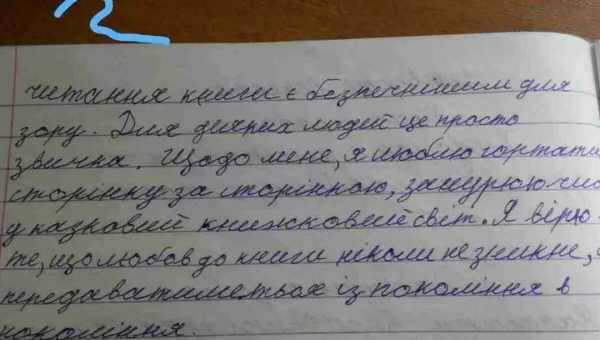 читання книги є безпечнішим для
зору. Для деяких людей це просто
звичка. Щодо мене, я люблю гортати
сторінку за сторінкою, занурюючис
у казковий книжковий світ. Я вірю
те, що любов до книги ніколи не зникне,
передаватиметься із покоління в
покоління.